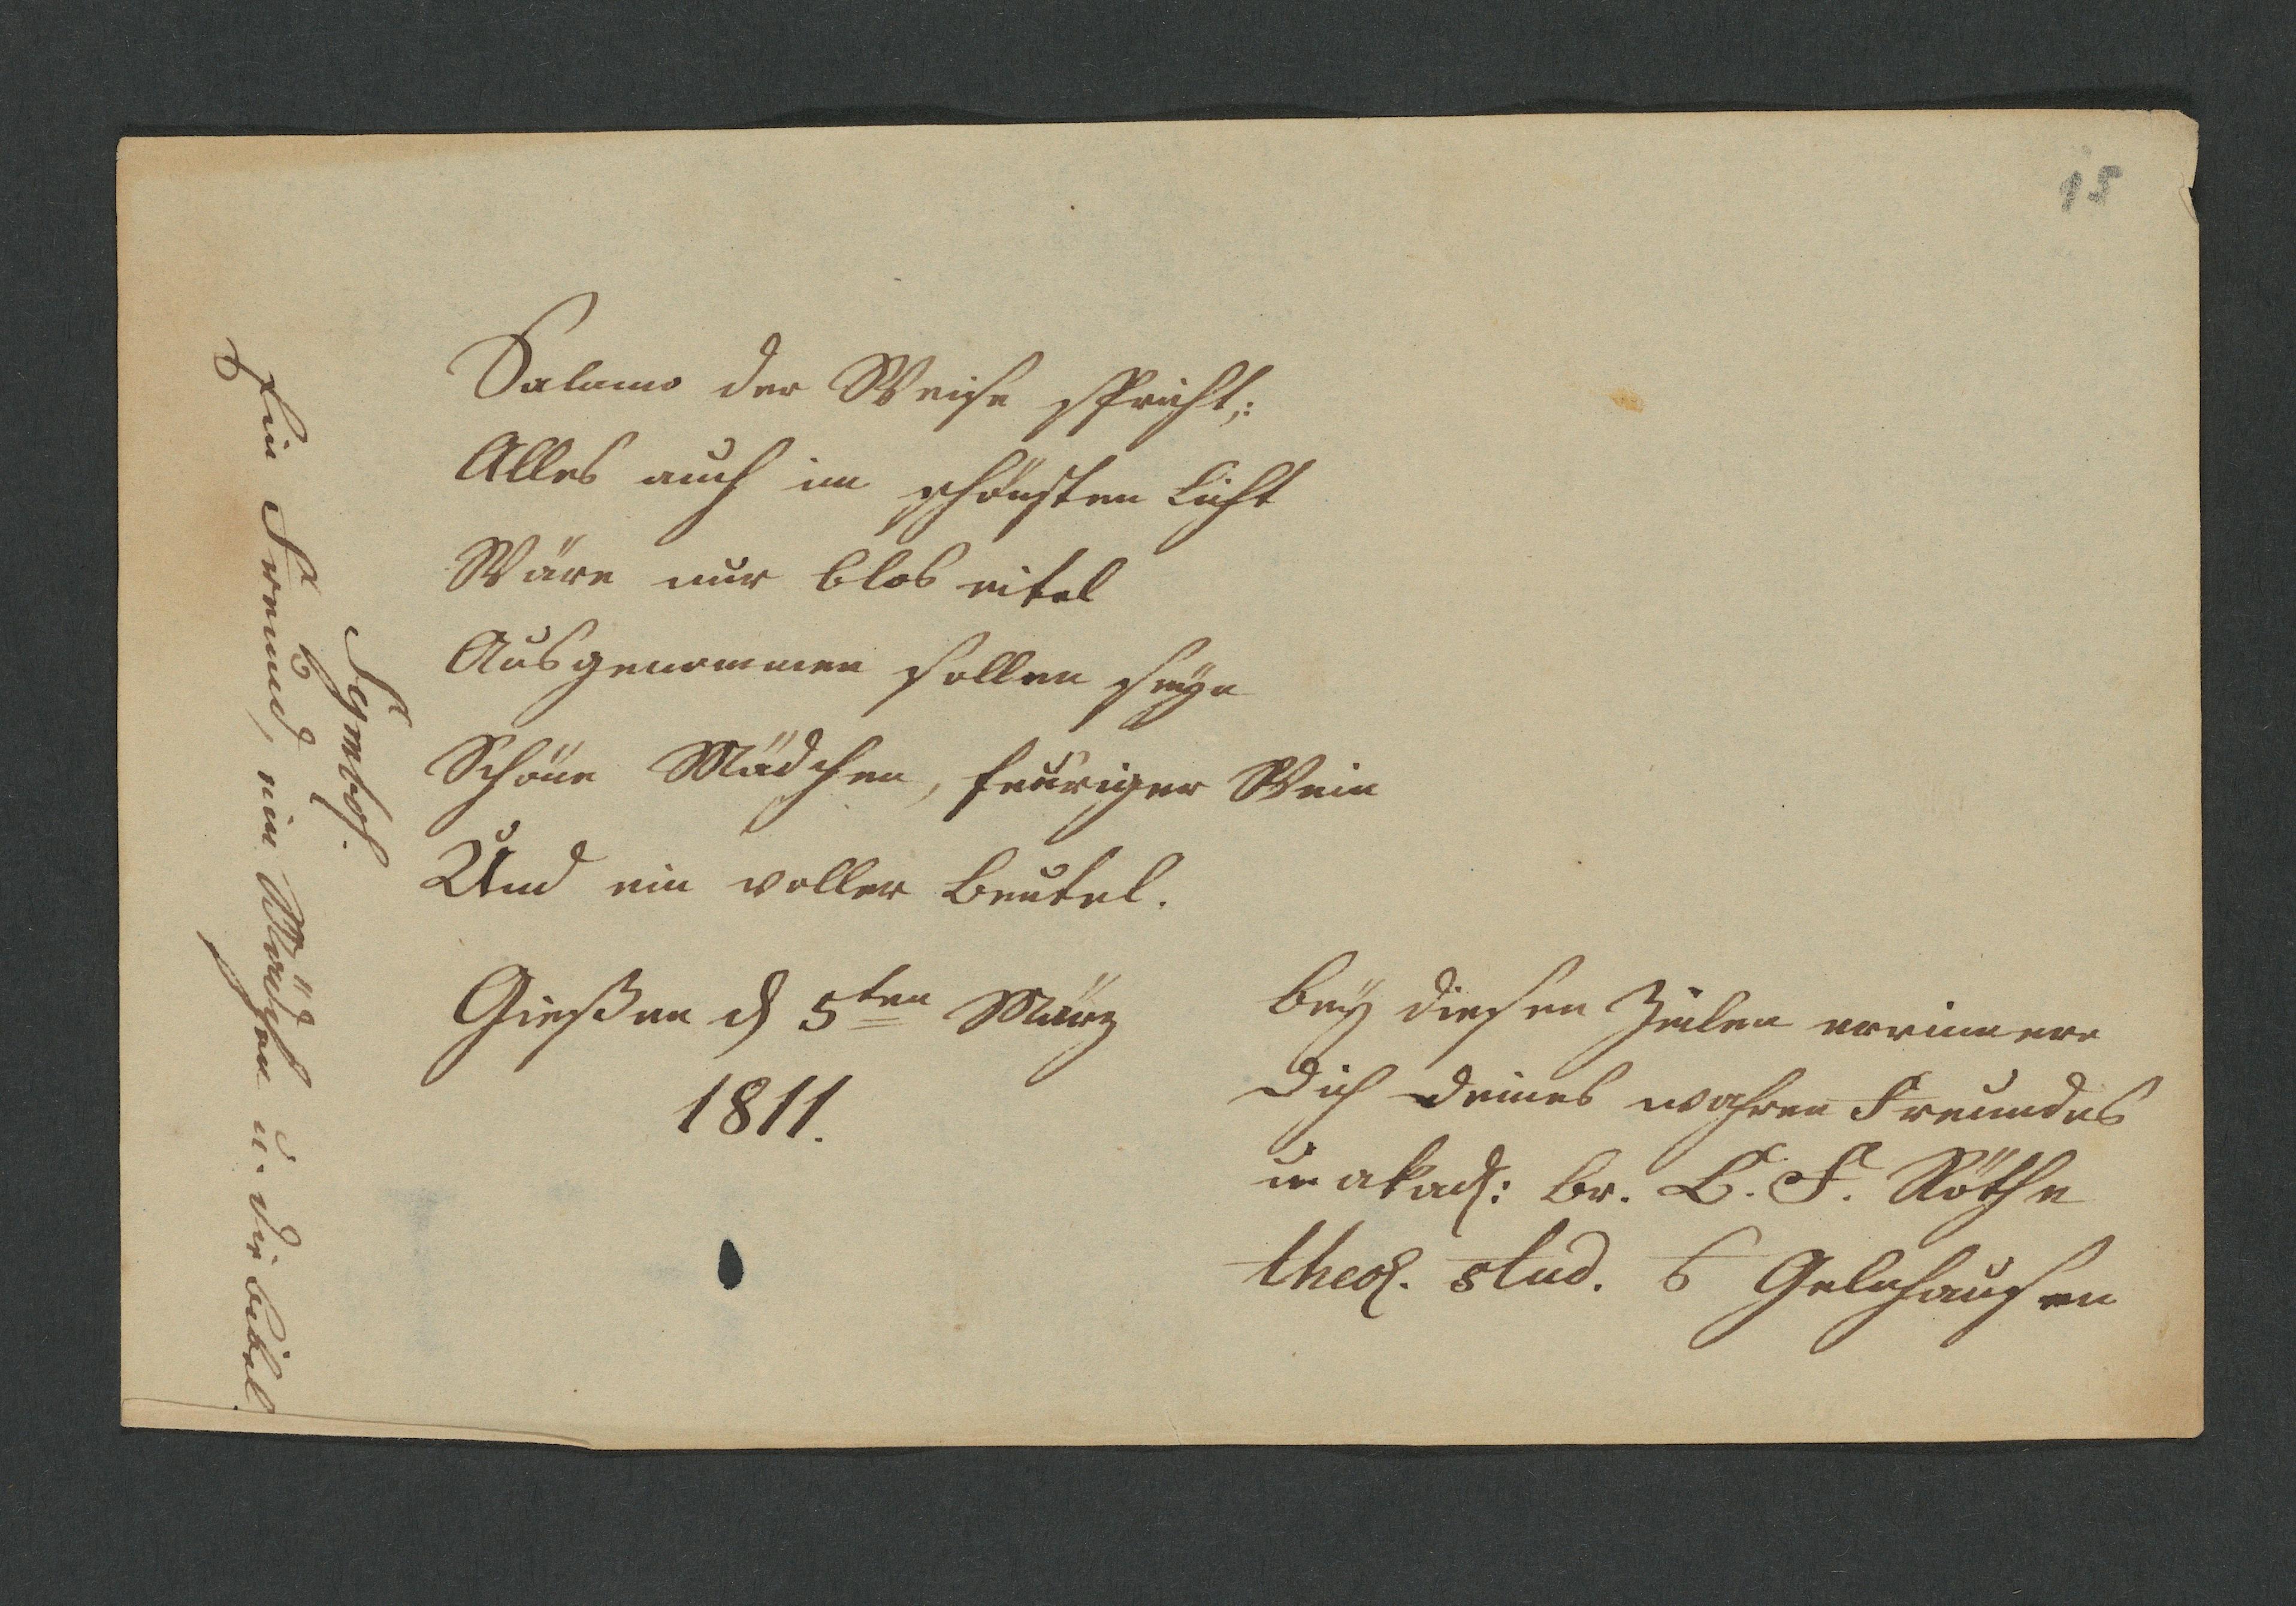 15
Salomo der Weise spricht:
Alles auch im schönsten Licht
Wäre nur blos eitel
Ausgenommen sollen seyn
Schöne Mädchen, feuriger Wein
Und ein voller Beutel.
Gießen d 5ten März
1811.
Bey diesen Zeilen errinnere
dich deines wahren Freundes
u akad: Br. F. Röthe
theol. stud. Gelnhausen
Symbol.
Ein Freund, ein Mädchen u. die Bibel.